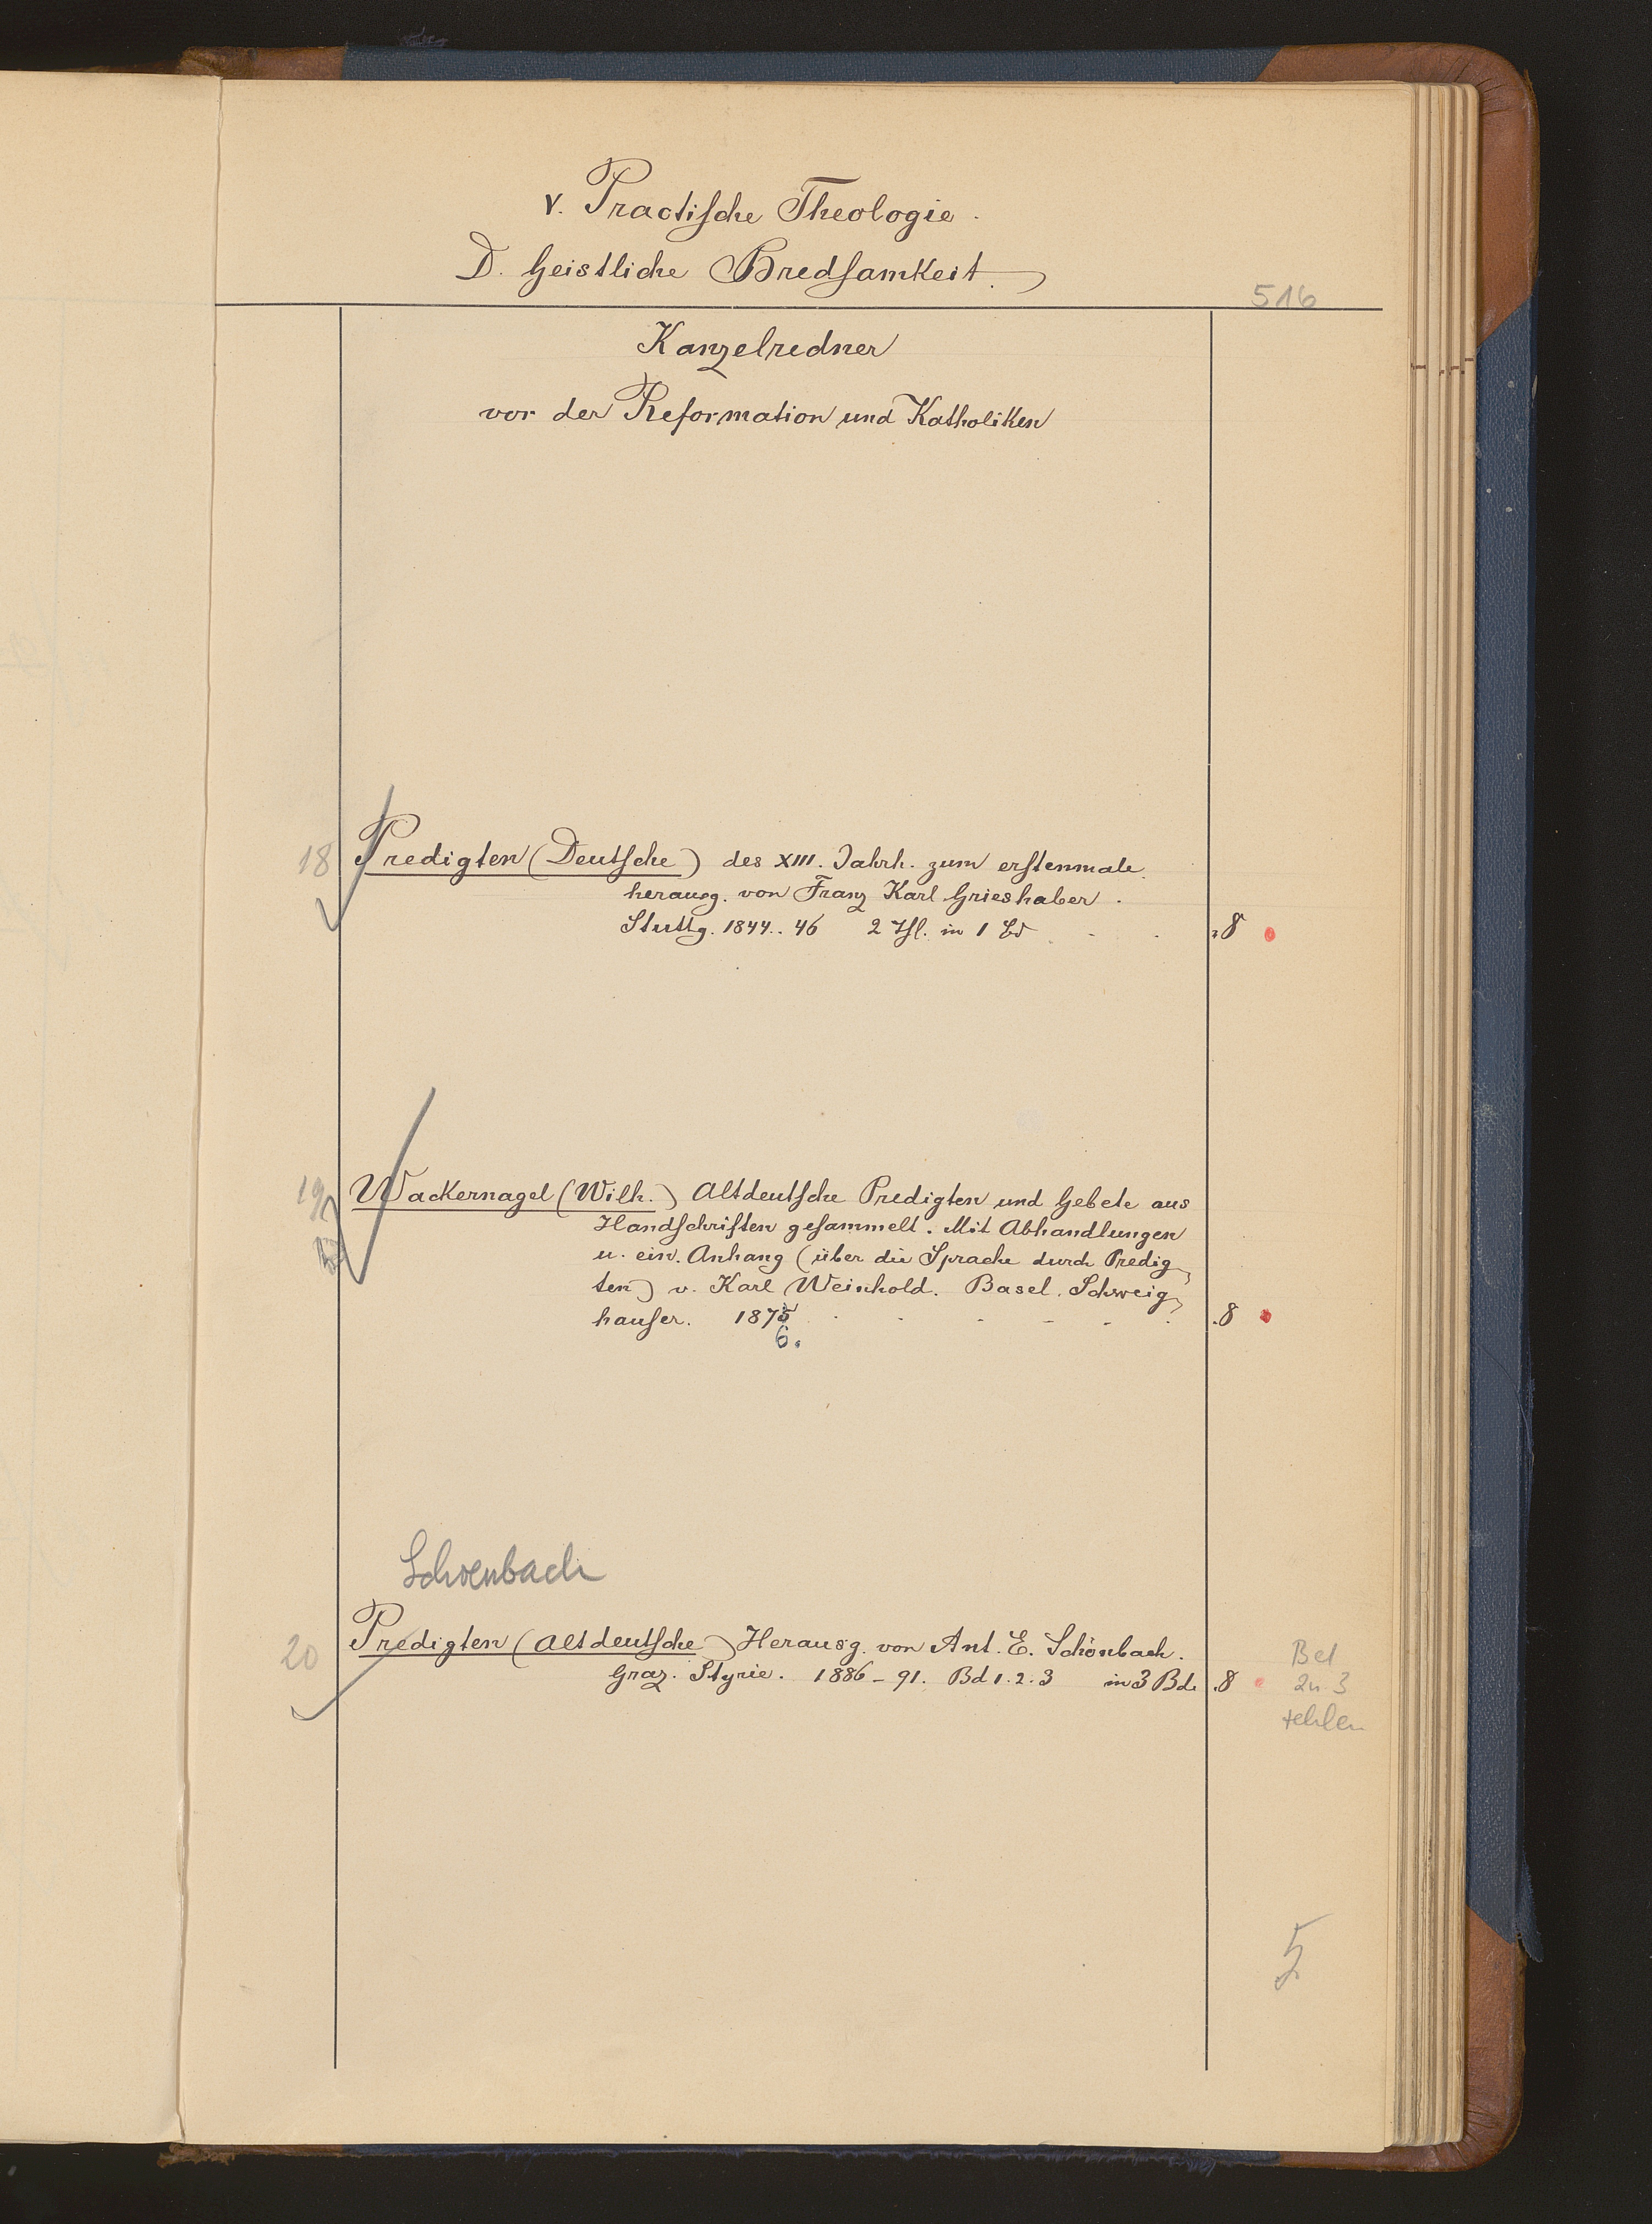 V. Practische Theologie.
D. Geistliche Bredsamkeit.
516
Kanzelredner
vor der Reformation und Katholiken
18 Predigten (Deutsche) des XIII. Jahrh. zum erstenmale
herausg. von Franz Karl Grieshaber.
Stuttg. 1844.. 46 2 Thl. in 1 Bd . . . 8
19 Wackernagel (Wilh.) Altdeutsche Predigten und Gebete aus
Handschriften gesammelt. Mit Abhandlungen
u. ein. Anhang (über die Sprache durch Predig-
ten) v. Karl Weinhold. Basel. Schweig-
hauser. 1875 . . . . . . .8
6.
Schoenbach
20 Predigten (Altdeutsche) Herausg. von Ant. E. Schönbach.
Graz. Styrie. 1886-91. Bd 1.2.3 in 3 Bde .8
Bd
2u.3
fehlen
5